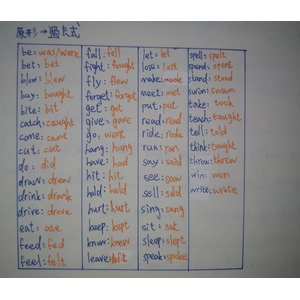 原形→过去式
be: was/were
bet: bet
blow: blew
buy: bought
bite: bit
catch: caught
come: came
cut: cut
do: did
draw: drew
drink: drank
drive: drove
eat: ate
feed: fed
feel: felt
fall: fell
fight: fought
fly: flew
forget: forgot
get: got
give: gave
go: went
hang: hung
have: had
hit: hit
hold: held
hurt: hurt
keep: kept
know: knew
leave: left
let: let
lose: lost
make: made
meet: met
put: put
read: read
ride: rode
run: ran
say: said
see: saw
sell: sold
sing: sang
sit: sat
sleep: slept
speak: spoke
spell: spelt
spend: spent
stand: stood
swim: swam
take: took
teach: taught
tell: told
think: thought
throw: threw
win: won
write: wrote